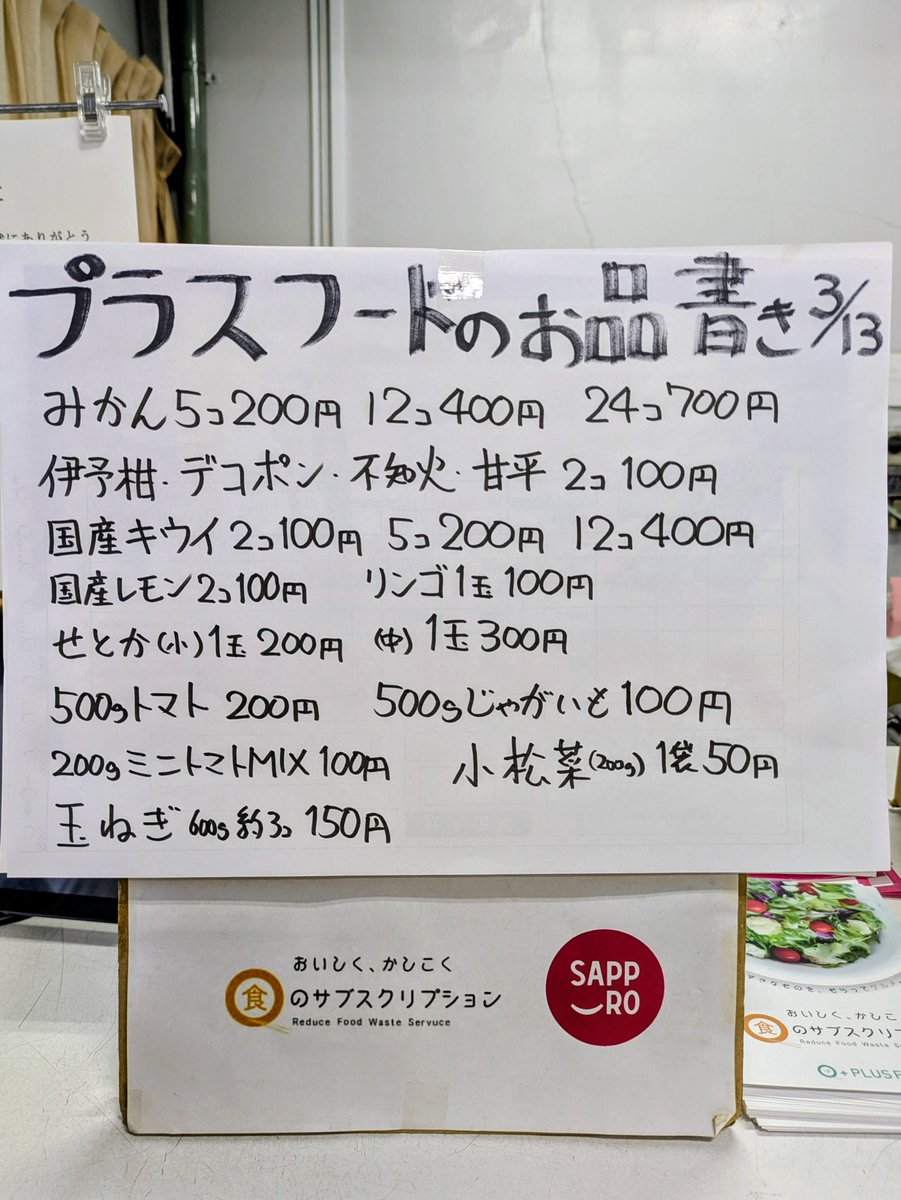 にありがとう
プラスフードのお品書き 3/13
みかん5コ200円 12コ400円 24コ700円
伊予柑・デコポン・不知火・甘平 2コ 100円
国産キウイ2コ100円 5コ200円 12コ400円
国産レモン2コ100円 リンゴ1玉100円
せとか(小)1玉200円 (中)1玉300円
500gトマト 200円 500gじゃがいも100円
200gミニトマトMIX100円 小松菜(200g)1袋50円
玉ねぎ600g約3コ 150円
おいしく、かしこく
食のサブスクリプション
Reduce Food Waste Servuce
SAPP
RO
きなものを、もらって
おいしく、かしこ
食のサブスクリプショ
Reduce Food Waste Se
+PLUSF